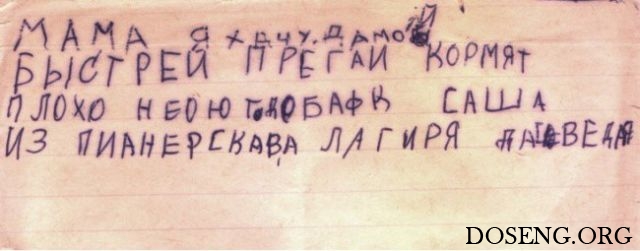 МАМА Я ХАЧУ. ДАМОЙ
БЫСТРЕЙ ПРЕГАЙ КОРМЯТ
ПЛОХО НЕ САША
ИЗ ПИАНЕРСКАВА ЛАГИРЯ
DOSENG.ORG